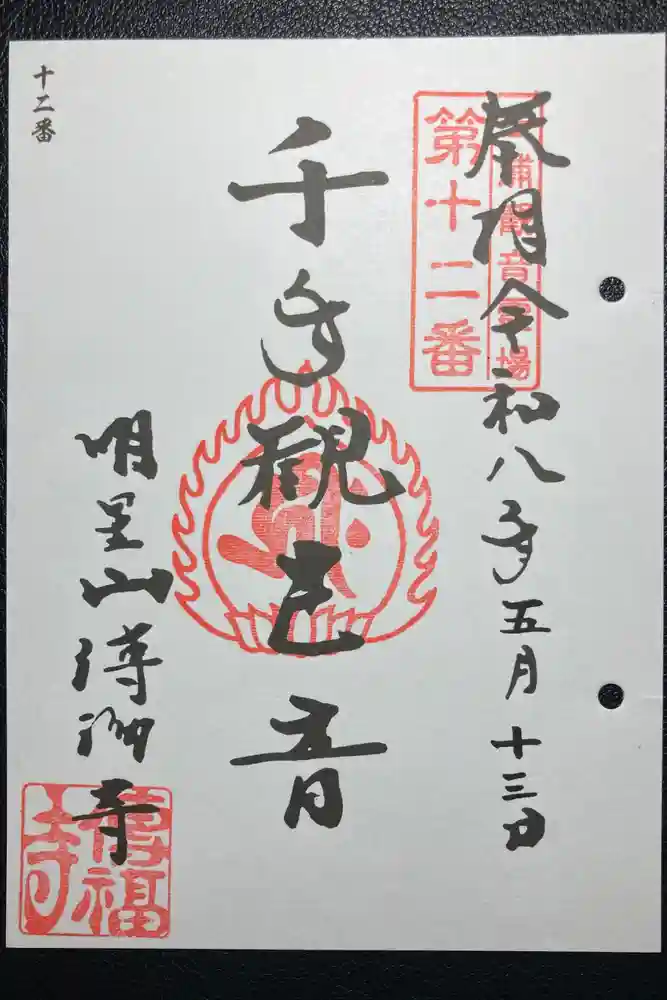 十二番
奉拝 令和八年五月十三日
三浦觀音霊場
第十二番
千手観世音
明星山傳福寺
傳福寺